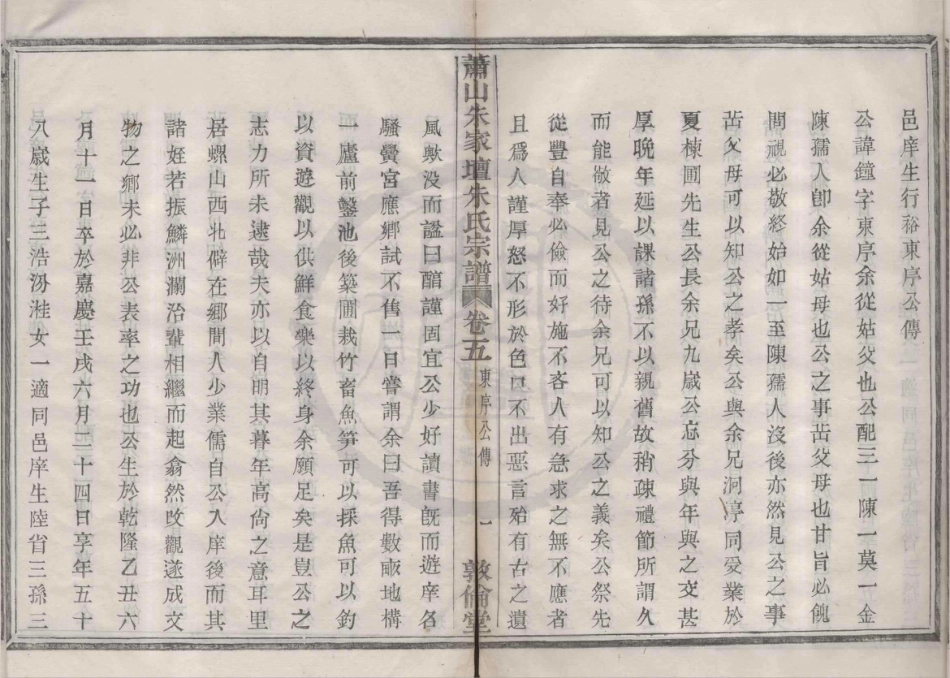 邑庠生行裕東序公傳
公諱鐘字東序余從姑父也公配三一陳一莫一金
陳孺人卽余從姑母也公之事岳父母也甘旨必餽
問視必敬終始如一至陳孺人沒後亦然見公之事
岳父母可以知公之孝矣公與余兄洞渟同受業於
夏棟圃先生公長余兄九歲公忘分與年與之交甚
厚晚年延以課諸孫不以親舊故稍疎禮節所謂久
而能敬者見公之待余兄可以知公之義矣公祭先
從豐自奉必儉而好施不吝人有急求之無不應者
且爲人謹厚怒不形於色口不出惡言殆有古之遺
蕭山朱家壇朱氏宗譜 卷五 東序公傳 一 敦倫堂
風歟没而諡曰醕謹固宜公少好讀書旣而遊庠各
騷黌宮應鄉試不售一日嘗謂余曰吾得數畝地構
一廬前鑿池後築圃栽竹畜魚筍可以採魚可以釣
以資遊觀以供鮮食樂以終身余願足矣是豈公之
志力所未逮哉夫亦以自明其暮年高尙之意耳里
居螺山西北僻在鄉間人少業儒自公入庠後而其
諸姪若振鱗洲瀾治輩相繼而起翕然改觀遂成文
物之鄉未必非公表率之功也公生於乾隆乙丑六
月十一日卒於嘉慶壬戌六月二十四日享年五十
八歲生子三浩沕溎女一適同邑庠生陸省三孫三